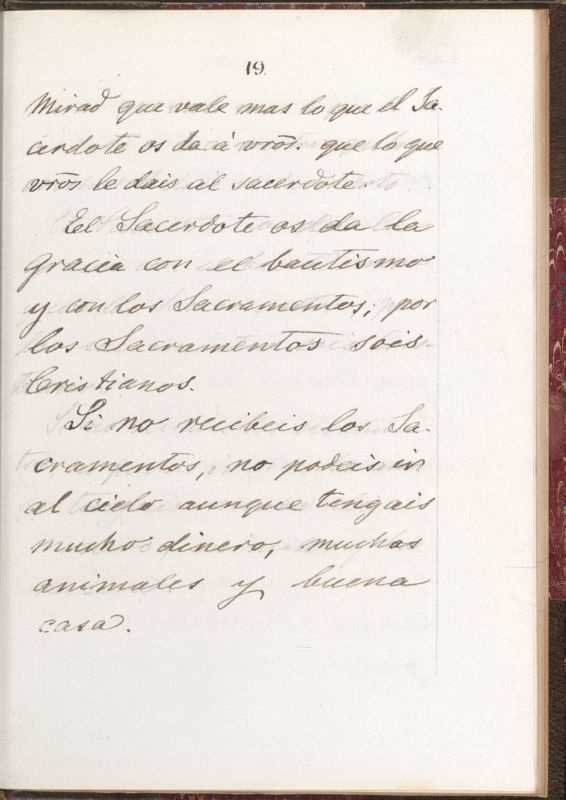 19.
Mirad que vale mas lo que el Sa-
cerdote os da á vrõs. que lo que
vrõs le dais al sacerdote.
El Sacerdote os da la
gracia con el bautismo
y con los Sacramentos; por
los Sacramentos sois
Cristianos.
Si no recibeis los Sa-
cramentos, no podeis ir
al cielo aunque tengais
mucho dinero, muchas
animales y buena
casa.